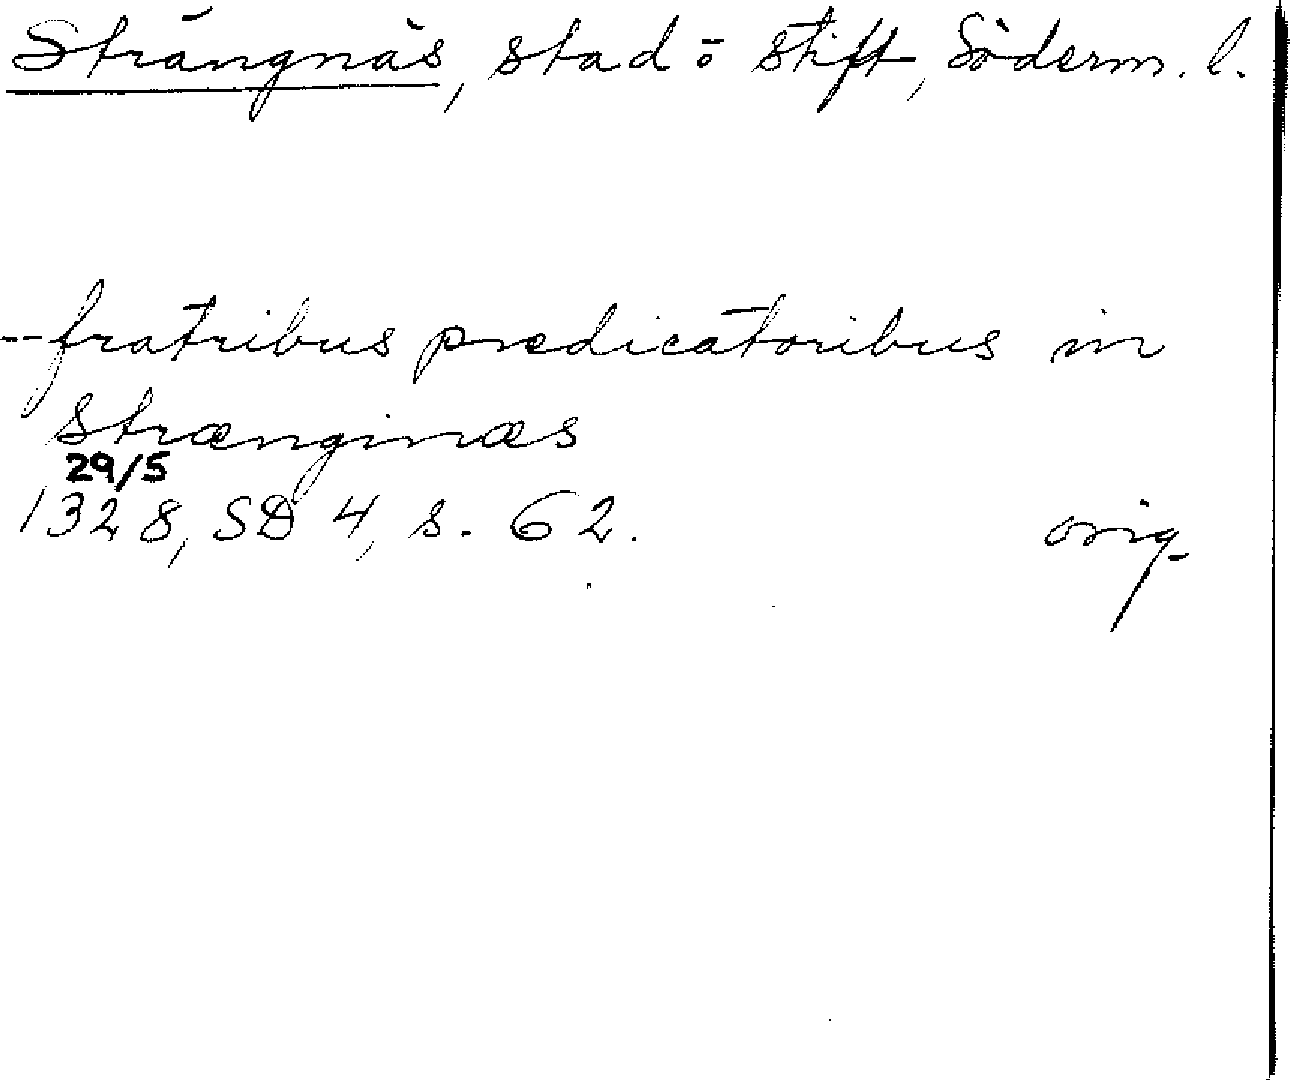 Strängnäs, stad ö stift, Söderm. l.
-- fratribus predicatoribus in
Strænginæs
29/5
1328, SD 4, s. 62. orig.